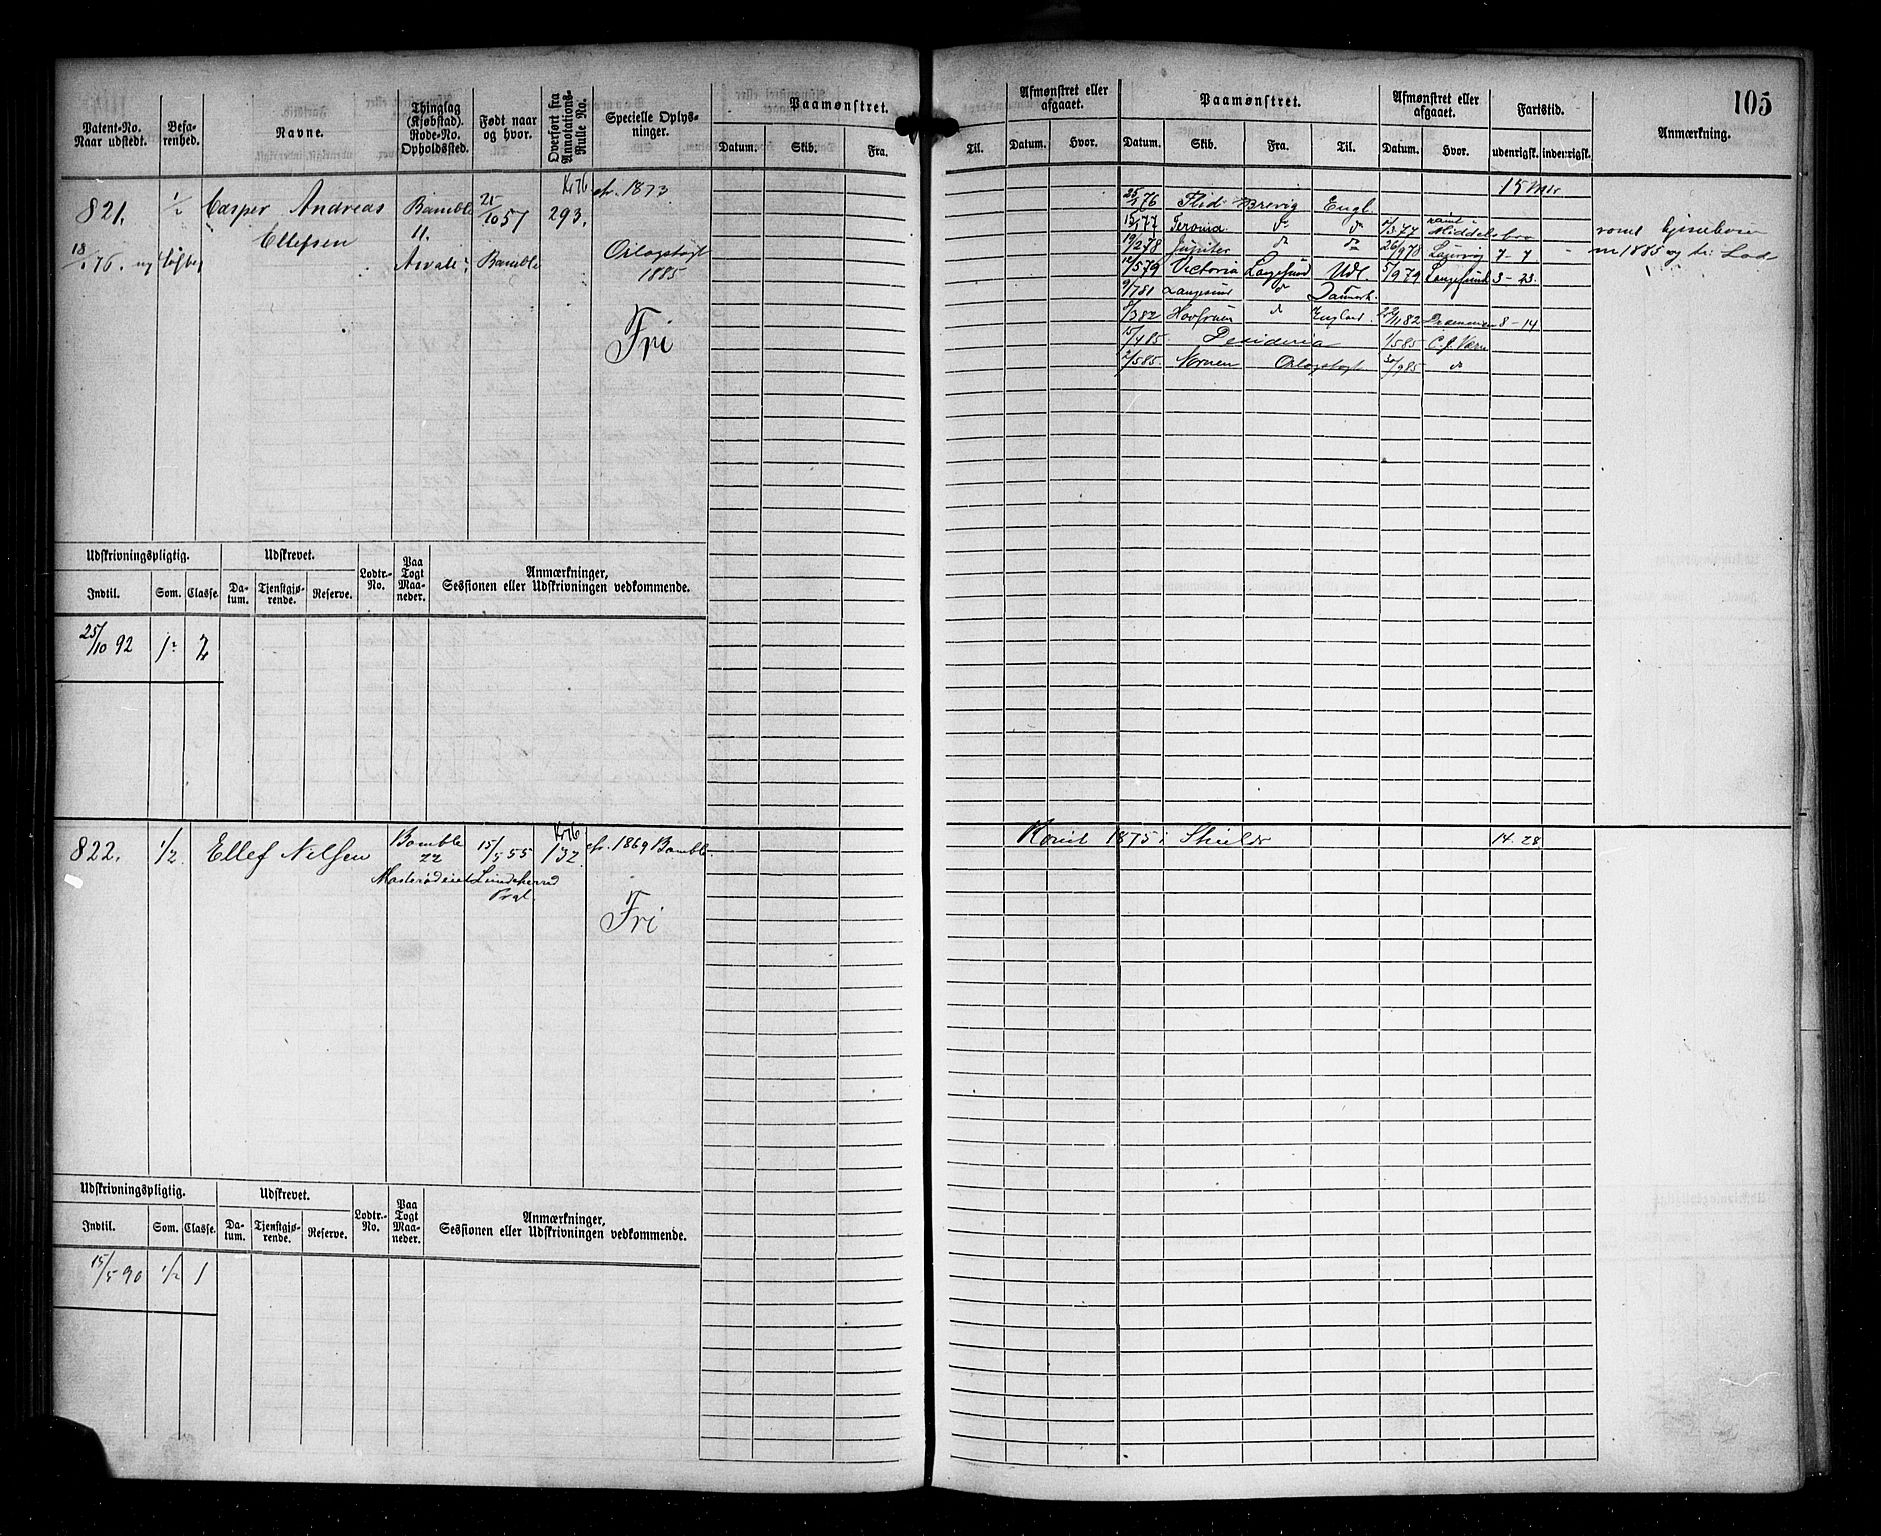 105
Patent-No.
Naar udstedt.
Befa-
renhed.
Navne.
Thinglag
(Kjøbstad).
Rode-No.
Opholdssted.
Født naar
og hvor.
Overført fra
Annotations-
Rulle No.
Specielle Oplys-
ninger.
Paamønstret.
Datum. Skib. Fra.
Til.
Afmønstret eller
afgaaet.
Datum. Hvor.
Paamønstret.
Datum. Skib. Fra. Til.
Afmønstret eller
afgaaet.
Datum. Hvor.
Fartstid.
udenrigsk. indenrigsk.
Anmærkning.
821. 1/2 Casper Andreas
Ellefsen
18/1 76.
Bamble
11.
25/10 57
Bamble
Kr 76
293.
cfr. 1873
Orlogstogt
1885
Fri
15 Mdr
25/1 76 Brevig Engl.
15/1 77 do do 1/3 77 Middelsbro
19/2 78 Jupiter do do 26/9 78 Laurvig 7-7
12/5 79 Victoria Langesund Udl. 5/9 79 Langesund 3-23.
9/7 81 Langesund do Danmark.
8/3 82 Havfruen do England 8-14
15/4 85 Desideria 1/5 85 C. J. Værn
2/5 85 Nornen Orlogstogt 30/9 85 do
Udskrivningspligtig.
Udskrevet.
Indtil. Som. Classe.
Da-
tum.
Tjenstgjø-
rende.
Reserve.
Lodtr.-
No.
Paa
Togt
Maa-
neder.
Anmærkninger,
Sessionen eller Udskrivningen vedkommende.
25/10 92 1/2 2
822. 1/2 Ellef Nilsen
Bamble
22
15/5 55
Lundeherred
Prgl.
Kr 76
132
cfr. 1869 Bamble.
Fri
1875 i 14.28
Udskrivningspligtig.
Udskrevet.
Indtil. Som. Classe.
Da-
tum.
Tjenstgjø-
rende.
Reserve.
Lodtr.-
No.
Paa
Togt
Maa-
neder.
Anmærkninger,
Sessionen eller Udskrivningen vedkommende.
15/5 90 1/2 1